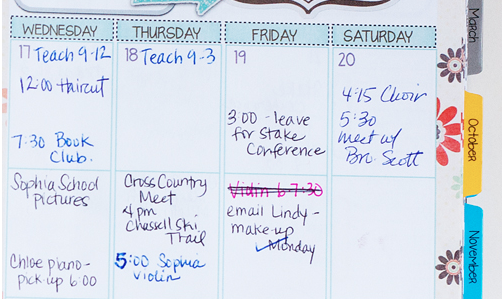 WEDNESDAY THURSDAY FRIDAY SATURDAY
17 Teach 9-12
12:00 Haircut
7:30 Book
Club.
18 Teach 9-3
19
3:00 - leave
for Stake
Conference
20
4:15 Choir
5:30
meet w/
Bro. Scott
Sophia School
pictures
Chloe piano -
pick-up 6:00
Cross Country
Meet
4pm
Chassell Ski
Trail
5:00 Sophia
violin
Violin 6-7:30
email Lindy -
make-up
Monday
March
October
November